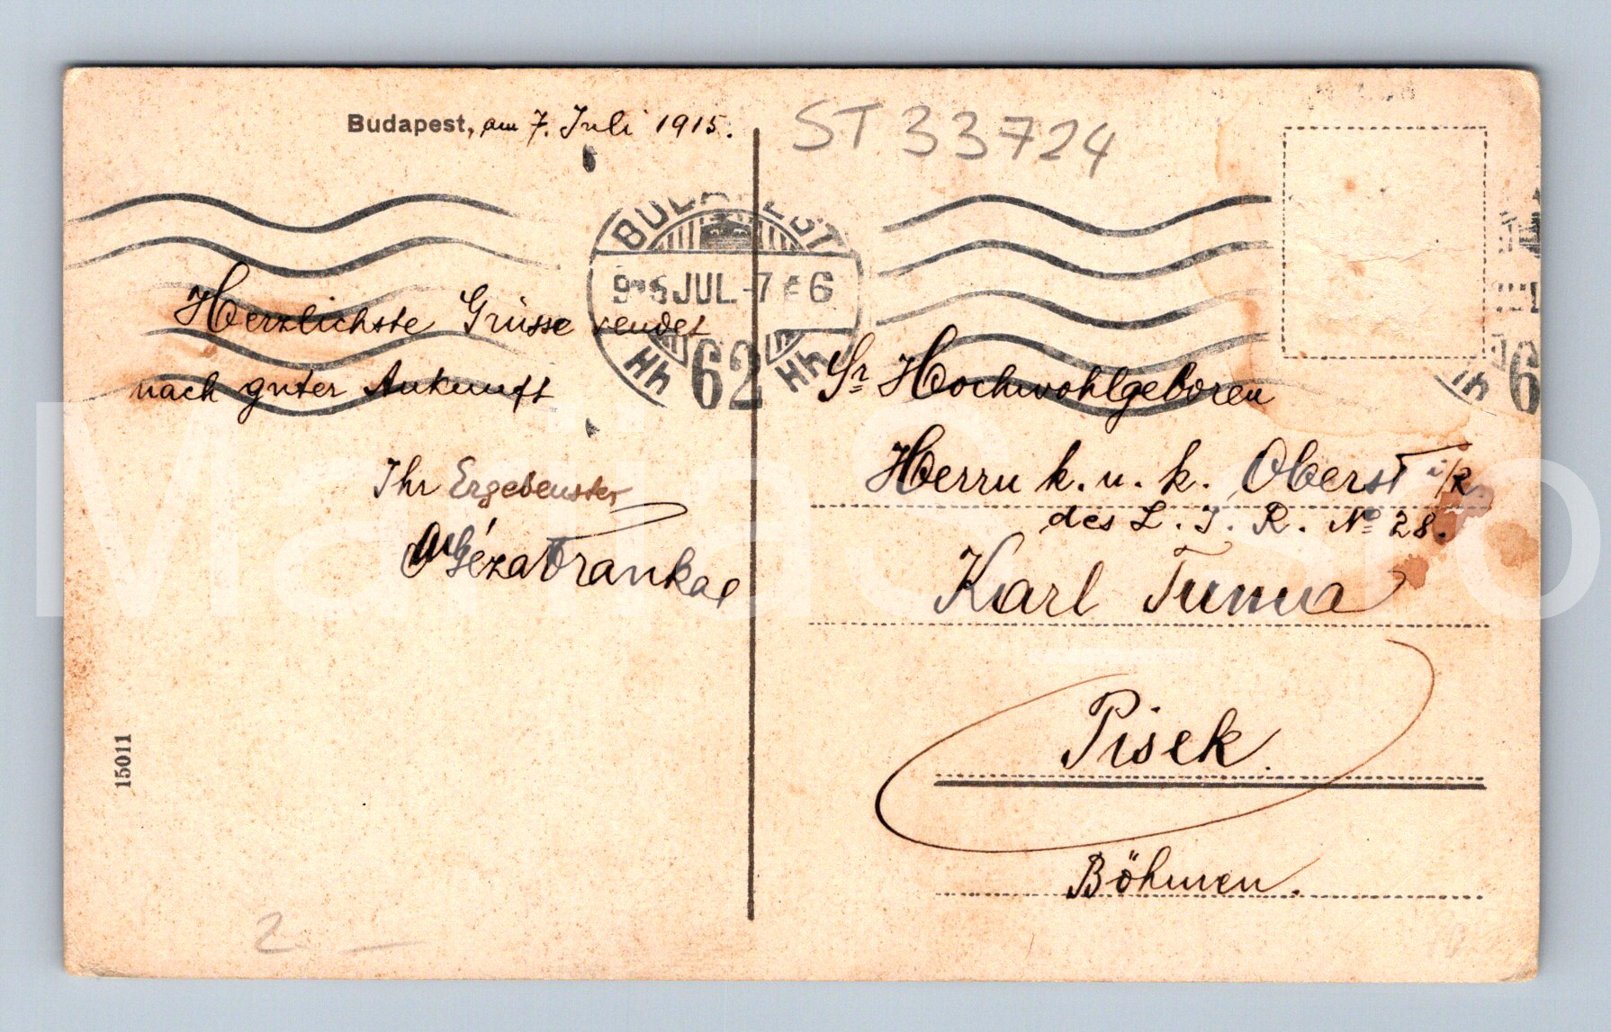 Budapest, am 7. Juli 1915.
ST 33724
BUDAPEST
915 JUL.-7 6
62
Herzlichste Grüsse sendet
nach guter Ankunft
Ihr Ergebenster
Géza Frankal
Sr Hochwohlgeboren
Herrn k. u. k. Oberst i/R
des L. I. R. No 28.
Karl Tuma
Pisek.
Böhmen.
15011
2.
6